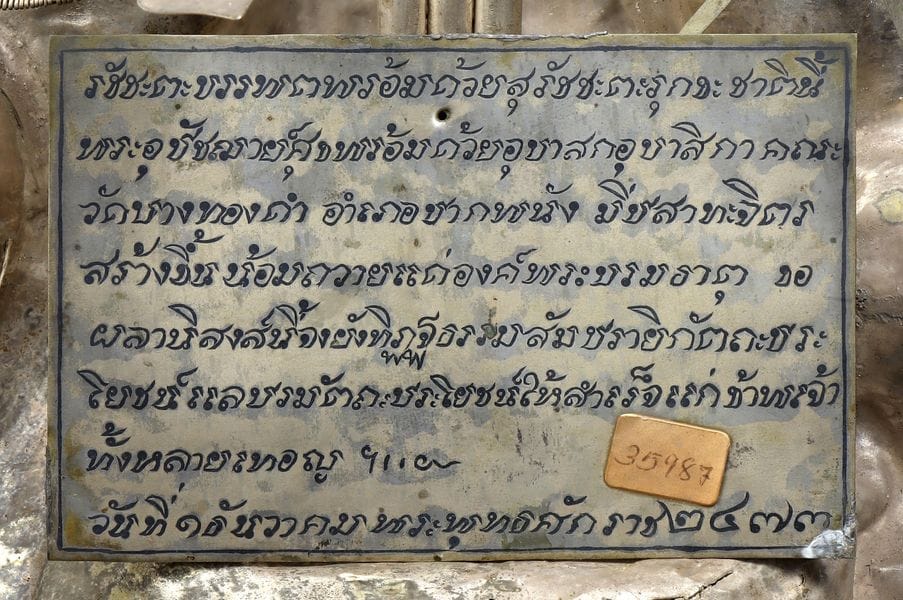 รัชชะตะบรรพตพรอ้มด้วยสุรัชชะตะรุกขะชาตินี้
พระอุปัชฌาย์ศุขพรอ้มด้วยอุบาสกอุบาสิกาคณะ
วัดบางทองคำ อำเภอปากพนัง มีปสาทะจิตร
สร้างขึ้นน้อมถวายแด่องค์พระบรมธาตุ ขอ
ผลานิสงส์นี้จงยังทิฏฐิธรรมสัมปรายิกัตถะประ
โยชน์แลบรมัตถะประโยชน์ให้สำเร็จแก่ข้าพเจ้า
ทั้งหลายเทอญ ฯ
35987
วันที่ ๑ ธันวาคม พระพุทธศักราช ๒๔๗๓